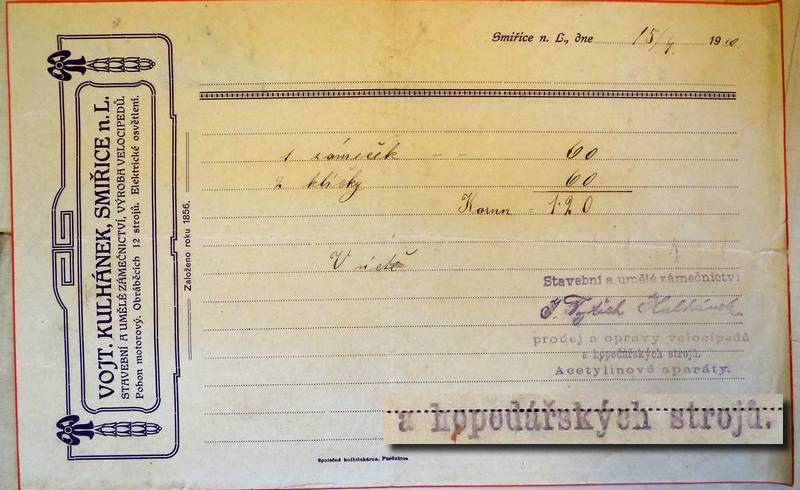 Smiřice n. L., dne 15/4 1910
VOJT. KULHÁNEK, SMIŘICE n. L.
STAVEBNÍ A UMĚLÉ ZÁMEČNICTVÍ, VÝROBA VELOCIPEDŮ.
Pohon motorový. Obráběcích 12 strojů. Elektrické osvětlení.
Založeno roku 1856.
1 zámeček — — 60
2 klíčky 60
Korun = 1·20
V úctě
Stavební a umělé zámečnictví
Kulhánek
prodej a opravy velocipedů
a hopodářských strojů.
Acetylinové aparáty.
a hopodářských strojů.
Společná knihtiskárna, Pardubice